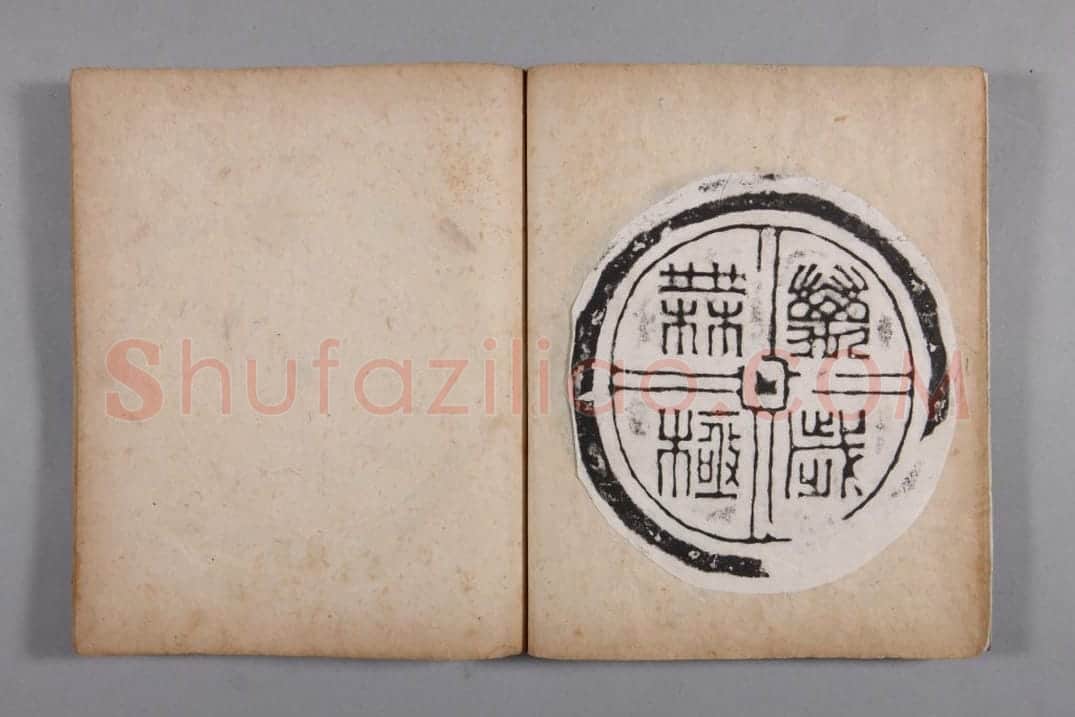 萬歲
無極
Shufaziliao.COM